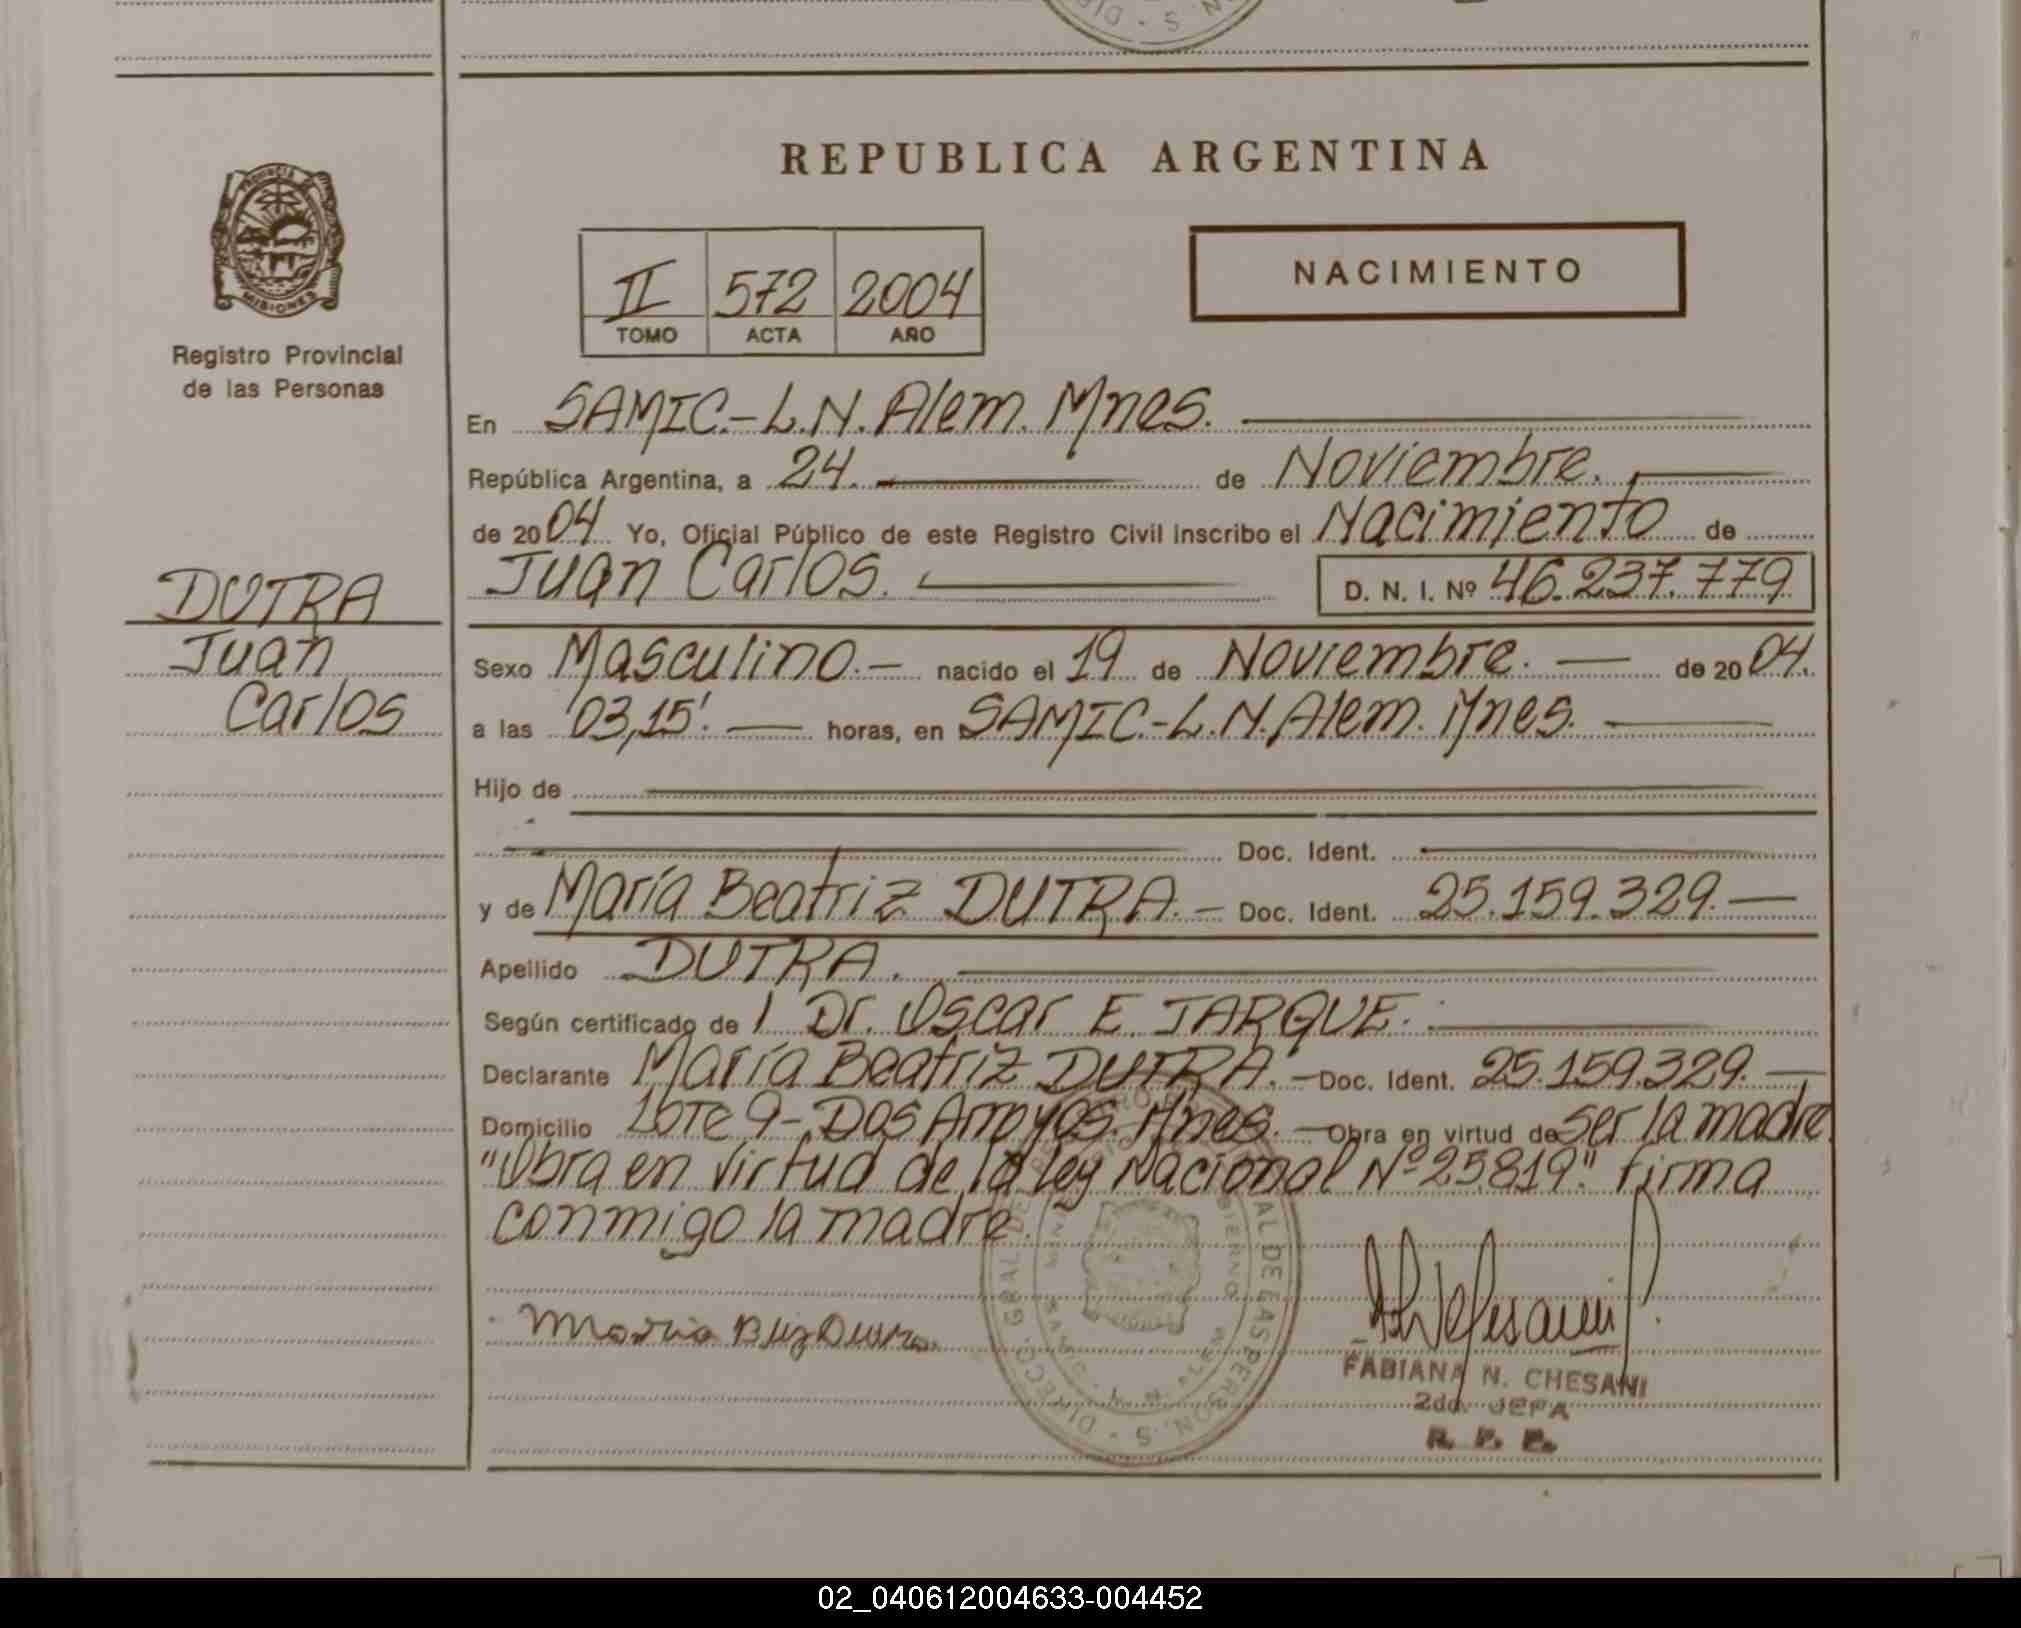 REPUBLICA ARGENTINA
PROVINCIA DE
MISIONES
Registro Provincial
de las Personas
II 572 2004
TOMO ACTA AÑO
NACIMIENTO
En SAMIC.-L.N.Alem. Mnes.
República Argentina, a 24. de Noviembre.
de 2004. Yo, Oficial Público de este Registro Civil inscribo el Nacimiento de
Juan Carlos. D. N. I. Nº 46.237.779
DUTRA
Juan
Carlos
Sexo Masculino.- nacido el 19 de Noviembre. de 2004.
a las 03,15'. horas, en SAMIC-L.N.Alem. Mnes.
Hijo de
Doc. Ident.
y de María Beatriz DUTRA.- Doc. Ident. 25.159.329.-
Apellido DUTRA.
Según certificado de / Dr. Oscar E. JARQUE.
Declarante María Beatriz DUTRA.- Doc. Ident. 25.159.329.-
Domicilio Lote 9-Dos Arroyos. Mnes.- Obra en virtud de ser la madre.
"Obra en virtud de la ley Nacional Nº 25819." firma
conmigo la madre.
Maria
FABIANA N. CHESANI
2do. JEFA
R. P. P.
02_040612004633-004452